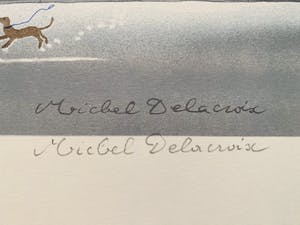 Michel Delacroix
Michel Delacroix